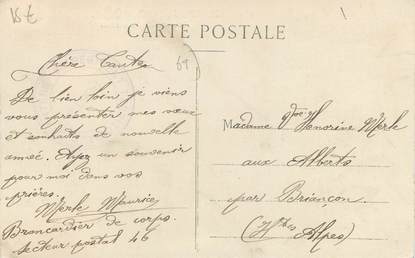 15 €
CARTE POSTALE
69
Chère Tante
De bien loin je viens
vous présenter mes vœux
et souhaits de nouvelle
année. Ayez un souvenir
pour moi dans vos
prières.
Merle Maurice
Brancardier de corps.
Secteur postal 46
Madame Honorine Merle
aux Alberts
par Briançon
(Htes Alpes)